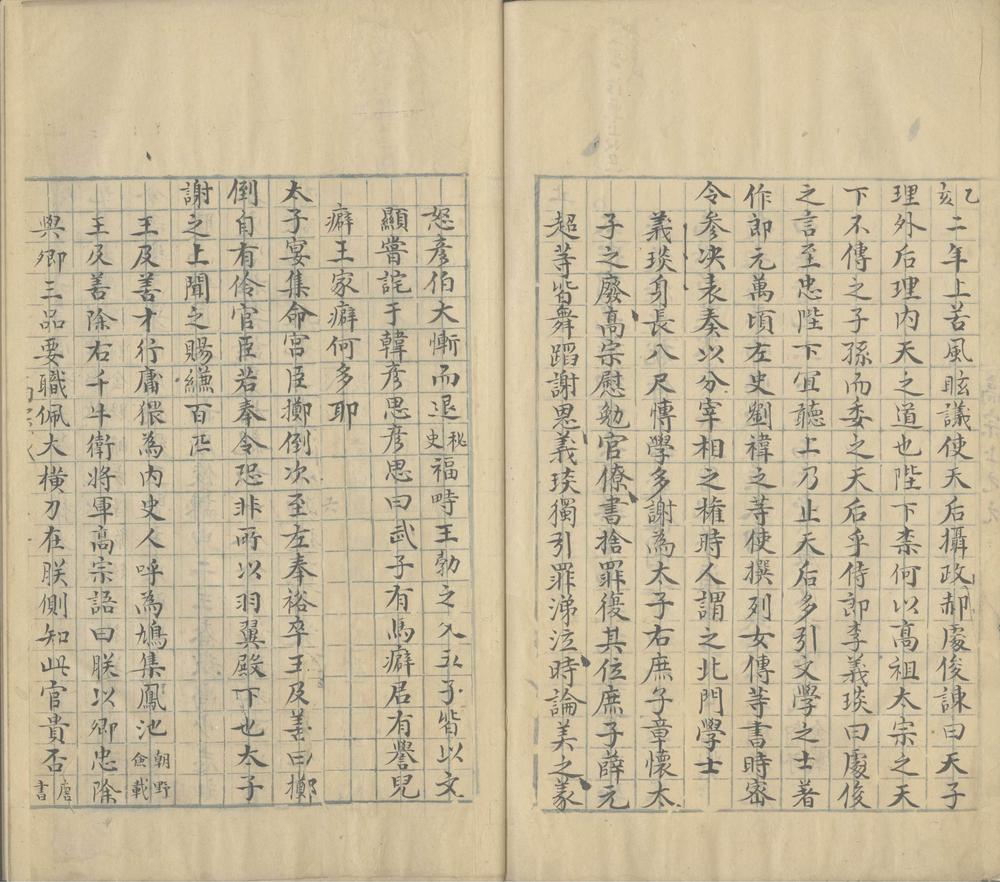 乙亥二年上苦風眩議使天后攝政郝處俊諫曰天子
理外后理内天之道也陛下柰何以高祖太宗之天
下不傳之子孫而委之天后乎侍郎李義琰曰處俊
之言至忠陛下宜聽上乃止天后多引文學之士著
作郎元萬頃左史劉禕之等使撰列女傳等書時密
令參决表奏以分宰相之權時人謂之北門學士
義琰身長八尺慱學多謝為太子右庶子章懷太
子之廢高宗慰勉官僚書捨罪復其位庶子薛元
超等皆舞蹈謝恩義琰獨引罪涕泣時論美之彖
怒彥伯大慚而退秘史福畤王勃之父五子皆以文
顯嘗詫于韓彥思彥思曰武子有馬癖君有譽兒
癖王家癖何多耶
太子宴集命宮臣擲倒次至左奉裕卒王及善曰擲
倒自有伶官臣若奉令恐非所以羽翼殿下也太子
謝之上聞之賜縑百匹
王及善才行庸猥為内史人呼為鳩集鳳池朝野僉載
王及善除右千牛衛將軍高宗語曰朕以卿忠除
與卿三品要職佩大橫刀在朕側知此官貴否唐書